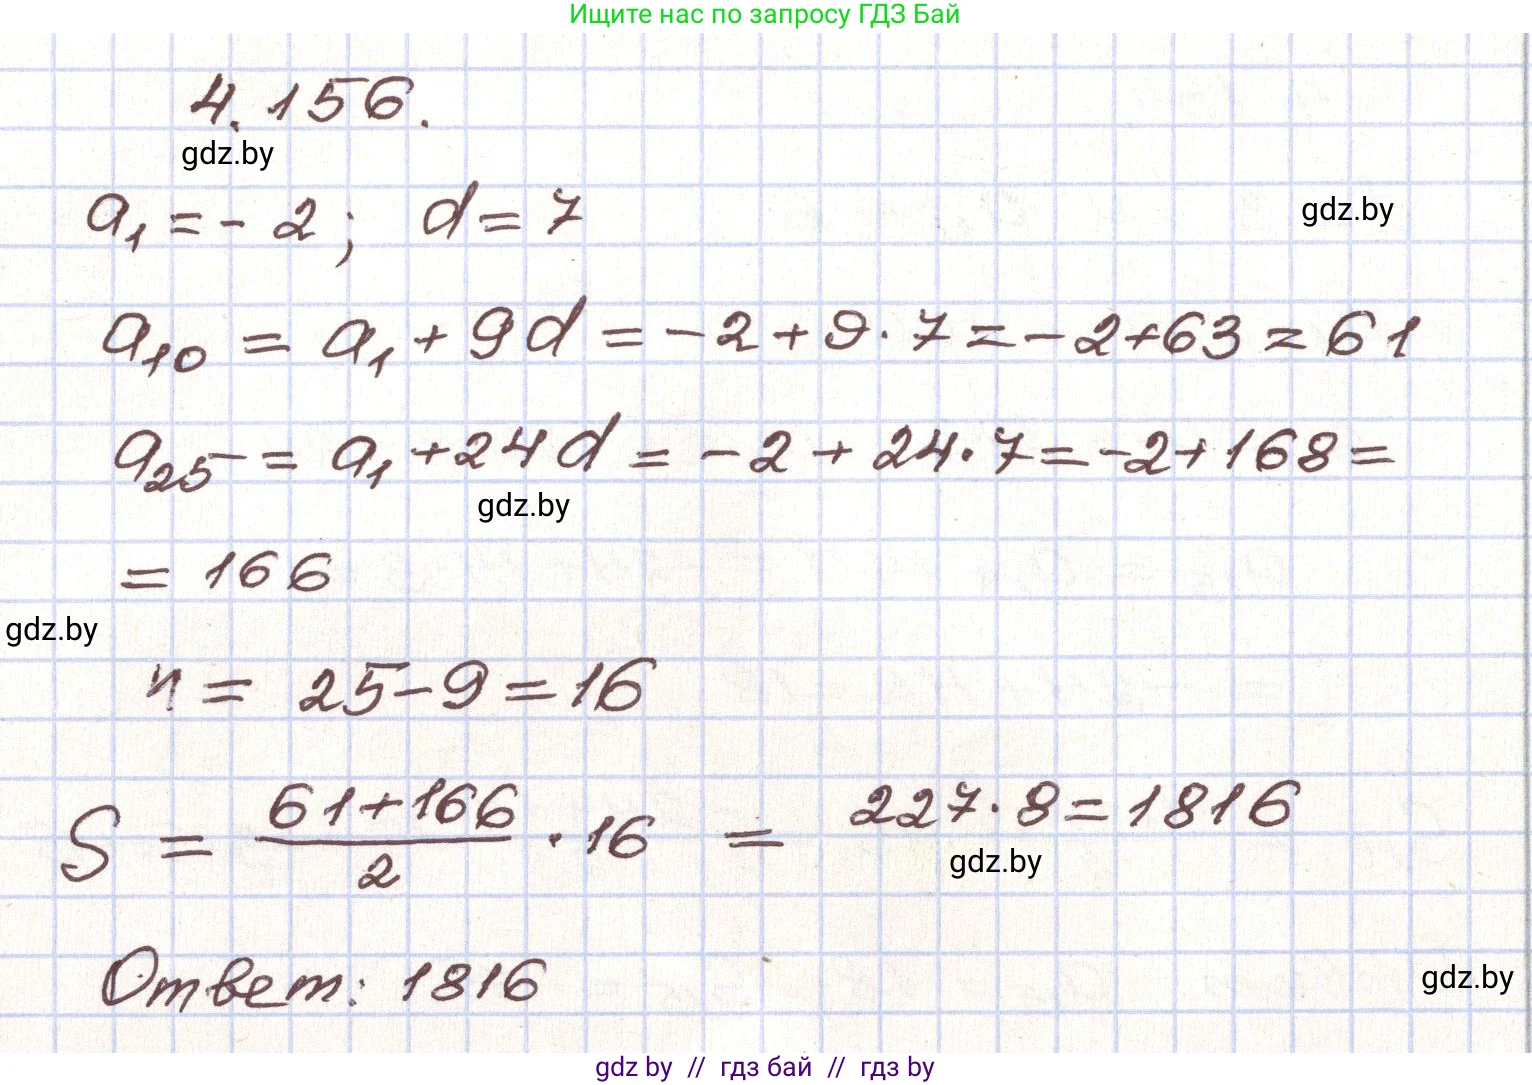 Ищите нас по запросу ГДЗ Бай
4.156.
gdz.by
a₁ = - 2 ; d = 7
gdz.by
a₁₀ = a₁ + 9d = -2 + 9·7 = -2+63 = 61
a₂₅ = a₁ + 24d = -2 + 24·7 = -2+168 =
gdz.by
= 166
gdz.by
n = 25-9 = 16
S = (61+166)/2 · 16 = 227·8 = 1816
gdz.by
Ответ: 1816
gdz.by
gdz by // гдз бай // гдз by